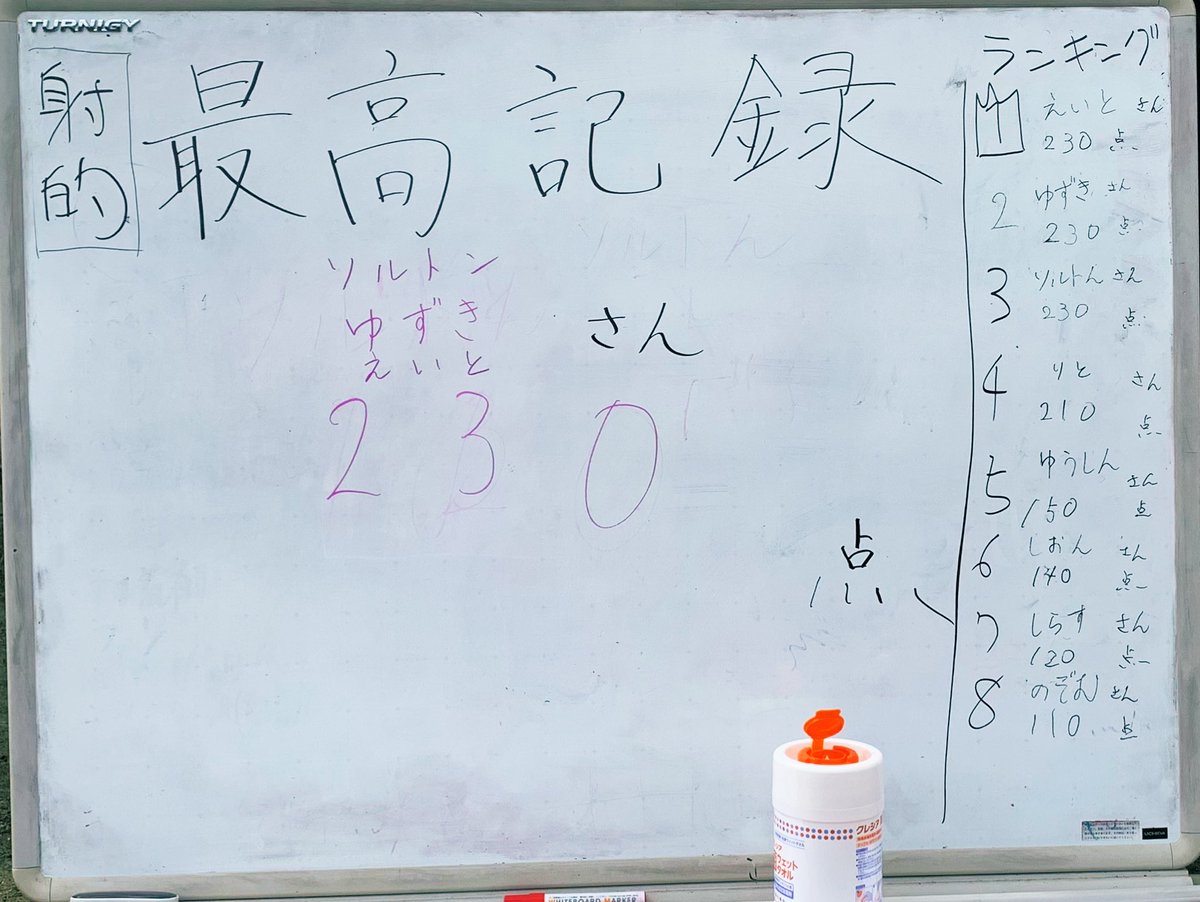 TURNIGY
射的
最高記録
ソルトン
ゆずき さん
えいと
230
点
ランキング
1 えいと さん
230 点
2 ゆずき さん
230 点
3 ソルトん さん
230 点
4 りと さん
210 点
5 ゆうしん さん
150 点
6 しおん さん
140 点
7 しらす さん
120 点
8 のぞむ さん
110 点
クレシア
WHITEBOARD MARKER